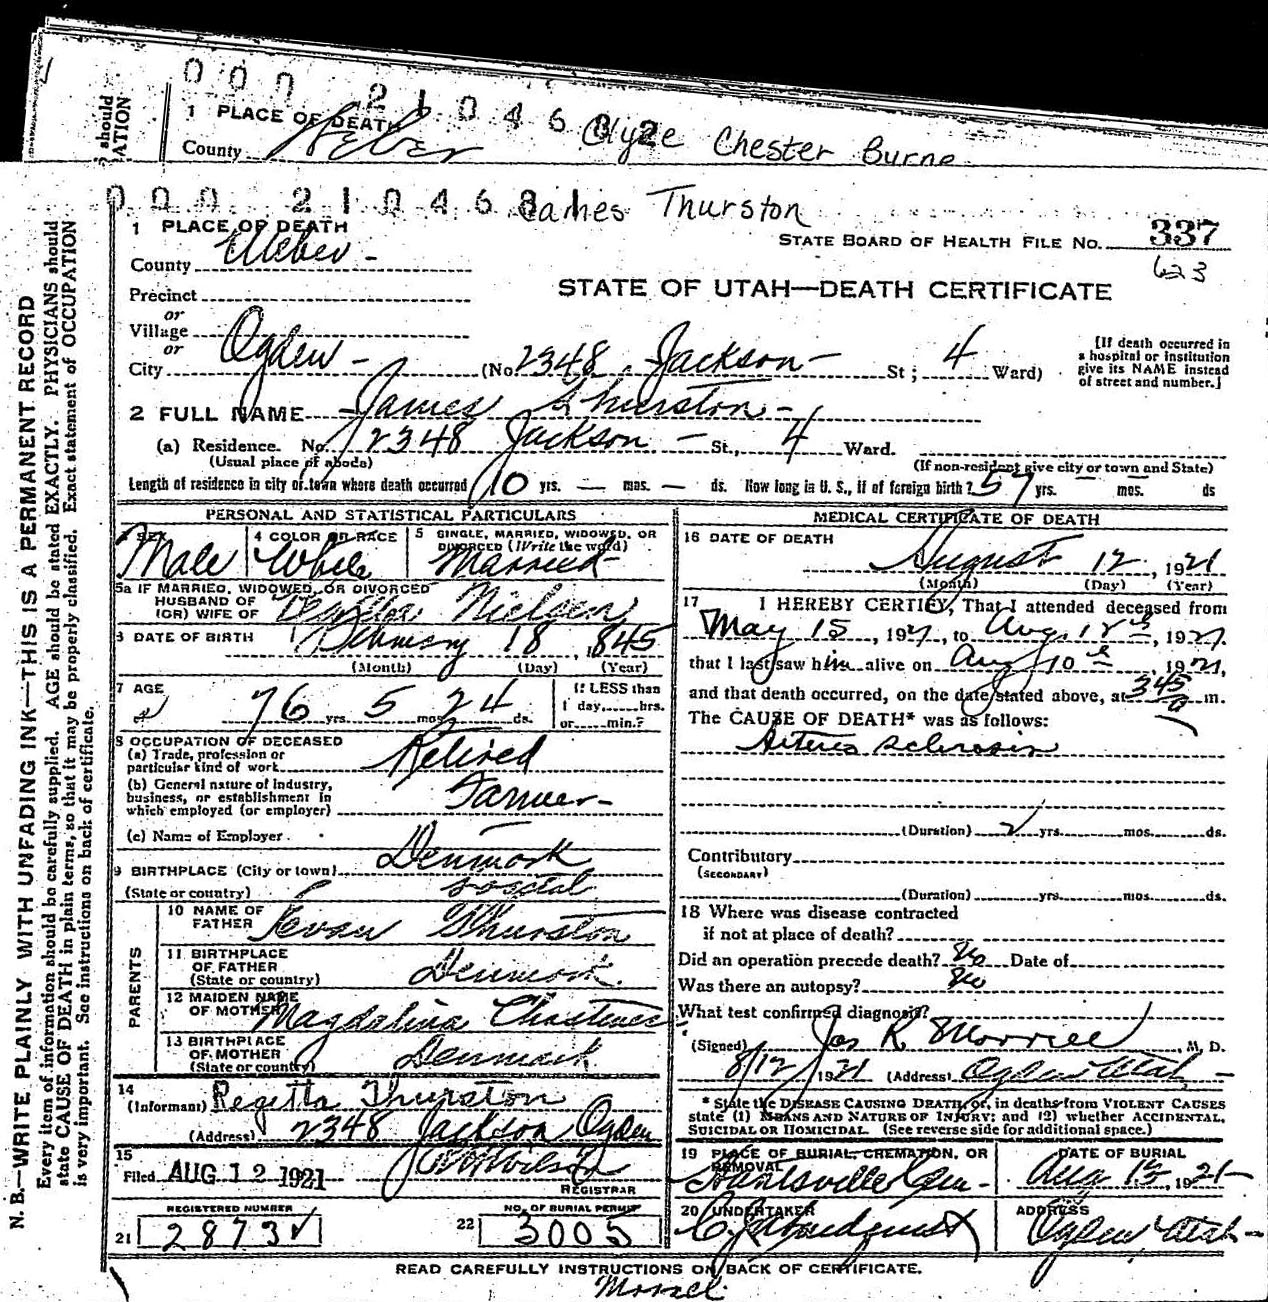 should
ATION
0 0 0 2 1 0 4 6 8 2
1 PLACE OF DEATH
Clyde Chester Burne
County Weber
0 0 0 2 1 0 4 6 8 1
James Thurston
1 PLACE OF DEATH
STATE BOARD OF HEALTH FILE NO. 337
County Weber
623
Precinct
STATE OF UTAH—DEATH CERTIFICATE
or
Village
or
City Ogden (No. 2348 Jackson St; 4 Ward)
[If death occurred in
a hospital or institution
give its NAME instead
of street and number.]
2 FULL NAME James Thurston
(a) Residence. No. 2348 Jackson St., 4 Ward.
(Usual place of abode)
(If non-resident give city or town and State)
Length of residence in city or town where death occurred 10 yrs. — mos. — ds. How long in U. S., if of foreign birth? 57 yrs. — mos. — ds
PERSONAL AND STATISTICAL PARTICULARS
3 SEX
Male
4 COLOR OR RACE
White
5 SINGLE, MARRIED, WIDOWED, OR
DIVORCED (Write the word)
Married
5a IF MARRIED, WIDOWED, OR DIVORCED
HUSBAND OF
(OR) WIFE OF
Nielsen
6 DATE OF BIRTH February 18, 1845
(Month) (Day) (Year)
7 AGE
76 yrs. 5 mos. 24 ds.
If LESS than
1 day,......hrs.
or......min.?
8 OCCUPATION OF DECEASED
(a) Trade, profession or
particular kind of work Retired
(b) General nature of industry,
business, or establishment in
which employed (or employer) Farmer
(c) Name of Employer
9 BIRTHPLACE (City or town) Denmark
(State or country)
PARENTS
10 NAME OF
FATHER
Thurston
11 BIRTHPLACE
OF FATHER
(State or country) Denmark.
12 MAIDEN NAME
OF MOTHER Magdalina
13 BIRTHPLACE
OF MOTHER
(State or country) Denmark
14
(Informant) Regetta Thurston
(Address) 2348 Jackson Ogden
15
Filed AUG 12 1921
Wilson
REGISTRAR
REGISTERED NUMBER
21 2873
NO. OF BURIAL PERMIT
22 3005
MEDICAL CERTIFICATE OF DEATH
16 DATE OF DEATH
August 12, 1921
(Month) (Day) (Year)
17 I HEREBY CERTIFY, That I attended deceased from
May 15, 1921, to Aug. 12th, 1921.
that I last saw him alive on Aug 10th, 1921,
and that death occurred, on the date stated above, at 345 a m.
The CAUSE OF DEATH* was as follows:
Arterio sclerosis
(Duration) 2 yrs. mos. ds.
Contributory
(SECONDARY)
(Duration) yrs. mos. ds.
18 Where was disease contracted
if not at place of death?
Did an operation precede death? No Date of
Was there an autopsy? No
What test confirmed diagnosis?
(Signed) Jos R Morrell M. D.
8/12, 1921 (Address) Ogden Utah
* State the DISEASE CAUSING DEATH, or, in deaths from VIOLENT CAUSES
state (1) MEANS AND NATURE OF INJURY; and (2) whether ACCIDENTAL,
SUICIDAL OR HOMICIDAL. (See reverse side for additional space.)
19 PLACE OF BURIAL, CREMATION, OR
REMOVAL
Huntsville Cem
DATE OF BURIAL
Aug 15, 1921
20 UNDERTAKER
ADDRESS
Ogden Utah
READ CAREFULLY INSTRUCTIONS ON BACK OF CERTIFICATE.
Morrel
N. B.—WRITE PLAINLY WITH UNFADING INK—THIS IS A PERMANENT RECORD
Every item of information should be carefully supplied. AGE should be stated EXACTLY. PHYSICIANS should
state CAUSE OF DEATH in plain terms, so that it may be properly classified. Exact statement of OCCUPATION
is very important. See instructions on back of certificate.